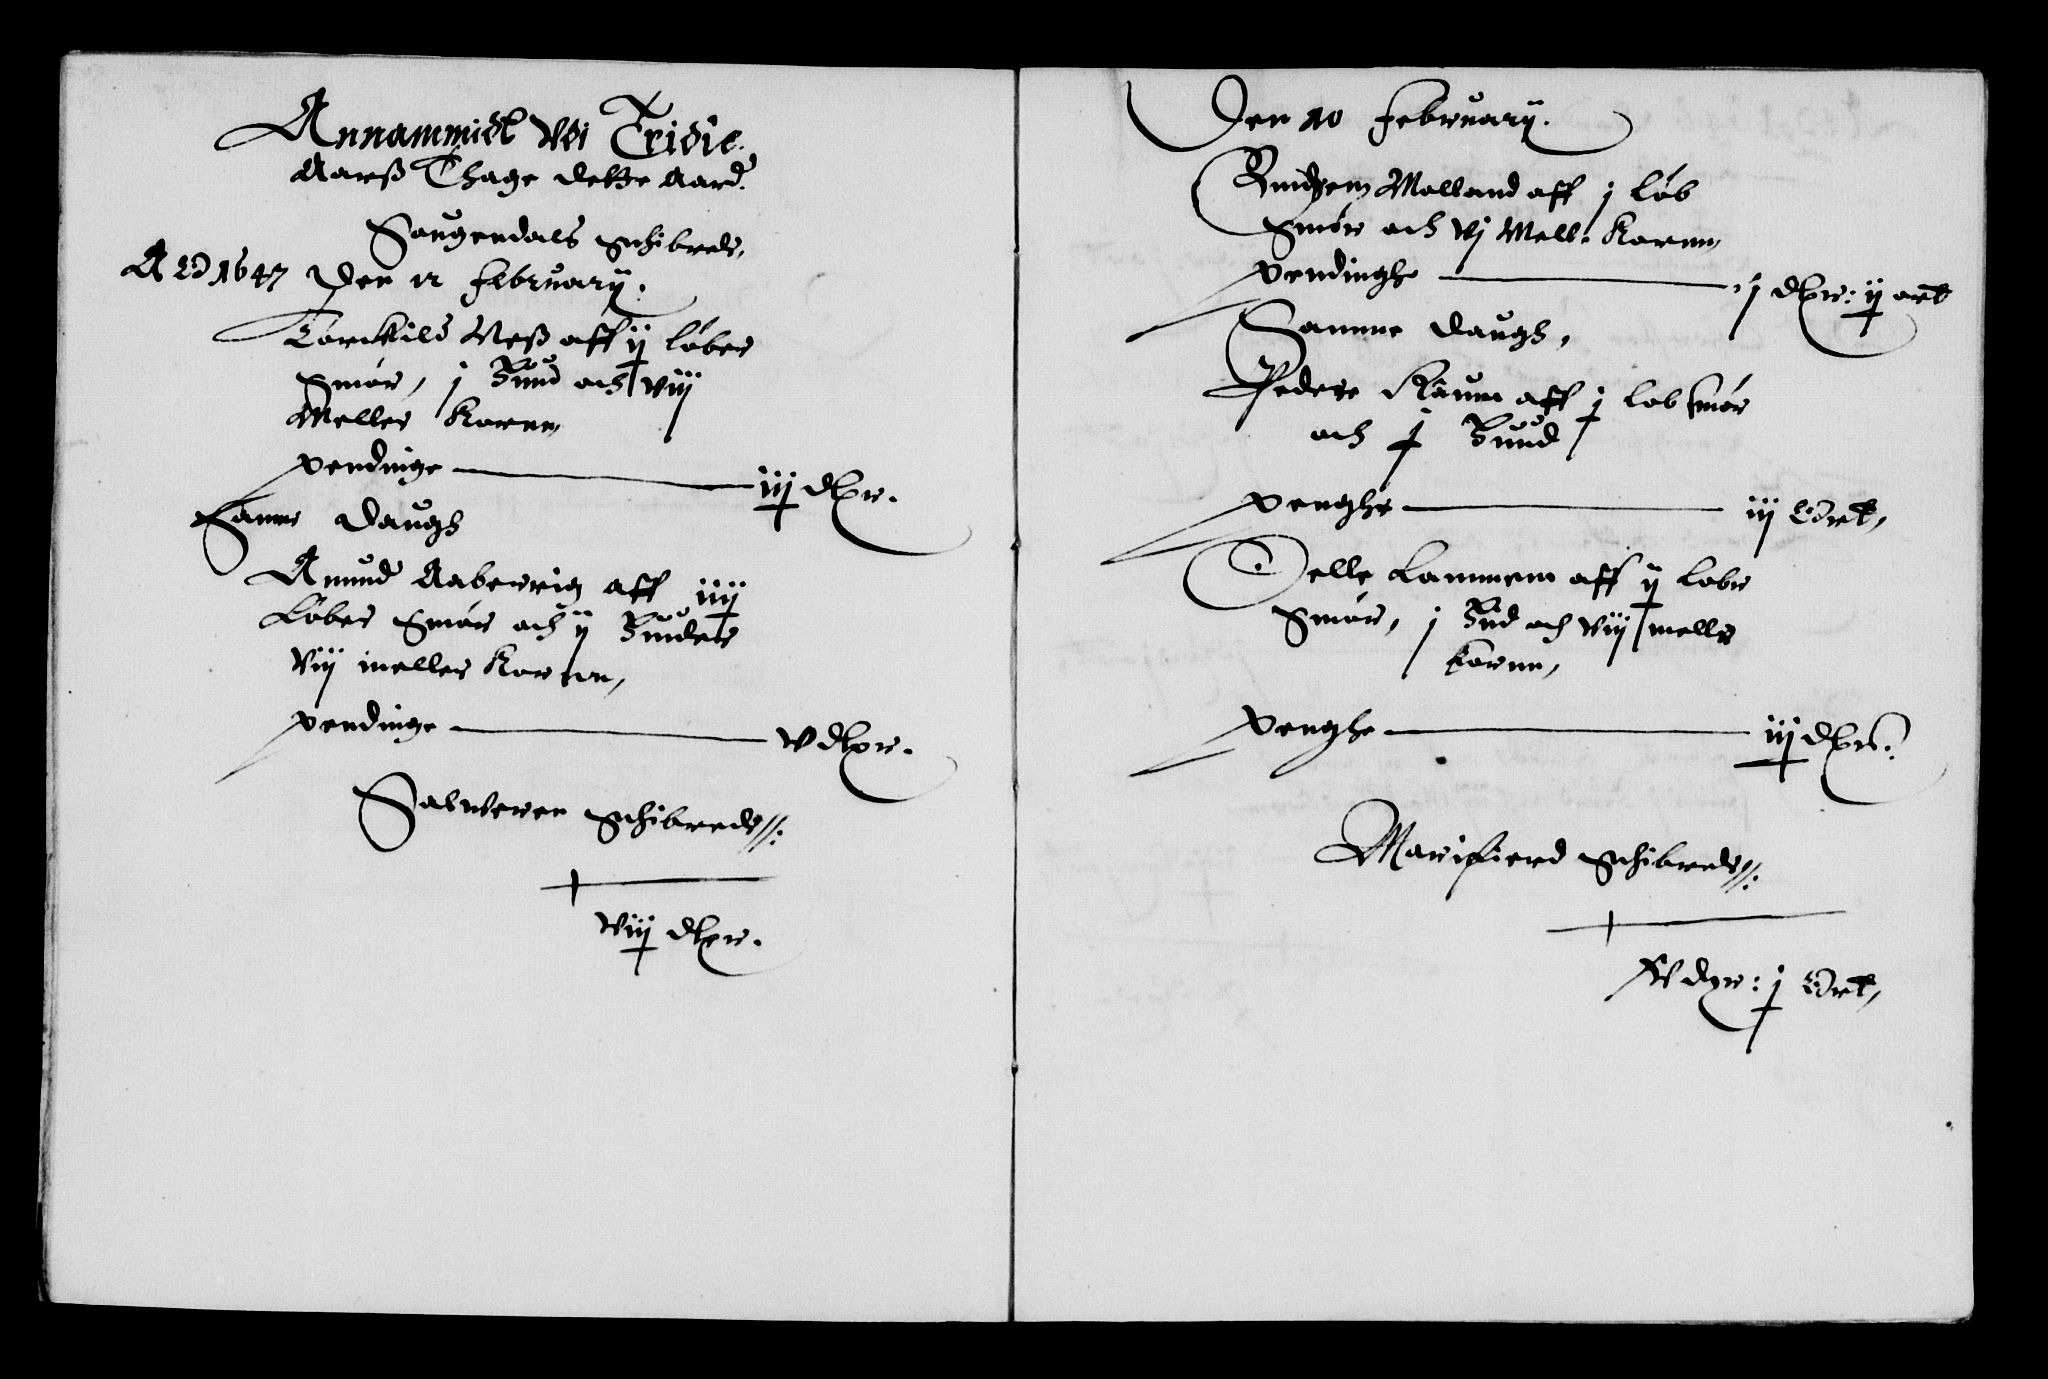 Annammidt Udi Tridie
Aarß Thage dette aard.
Sougendals Schibrede,
AO 1647 Den 12 February.
Torckild Neß aff ij løber
Smør, j Hud och viij
Meller Kornn,
pendinge iij dlr.
Samme Daugh
Amund Aabervig aff iiij
Løber Smør och ij Huder
viij meller Kornn,
pendinge v dlr.
Salueren Schibrede //:
viij dlr.
Den 10 February.
Molland aff j Løb
Smør och vj Mell. Kornn,
pendinghe j dlr: ij ort
Samme Daugh,
Peder aff j Løb Smør
och j Hud
penghe iij Ort,
Lammem aff ij Løber
Smør, j Hud och viij meller
Kornn,
penghe iij dlr.
Schibrede //:
v dlr: j Ort,